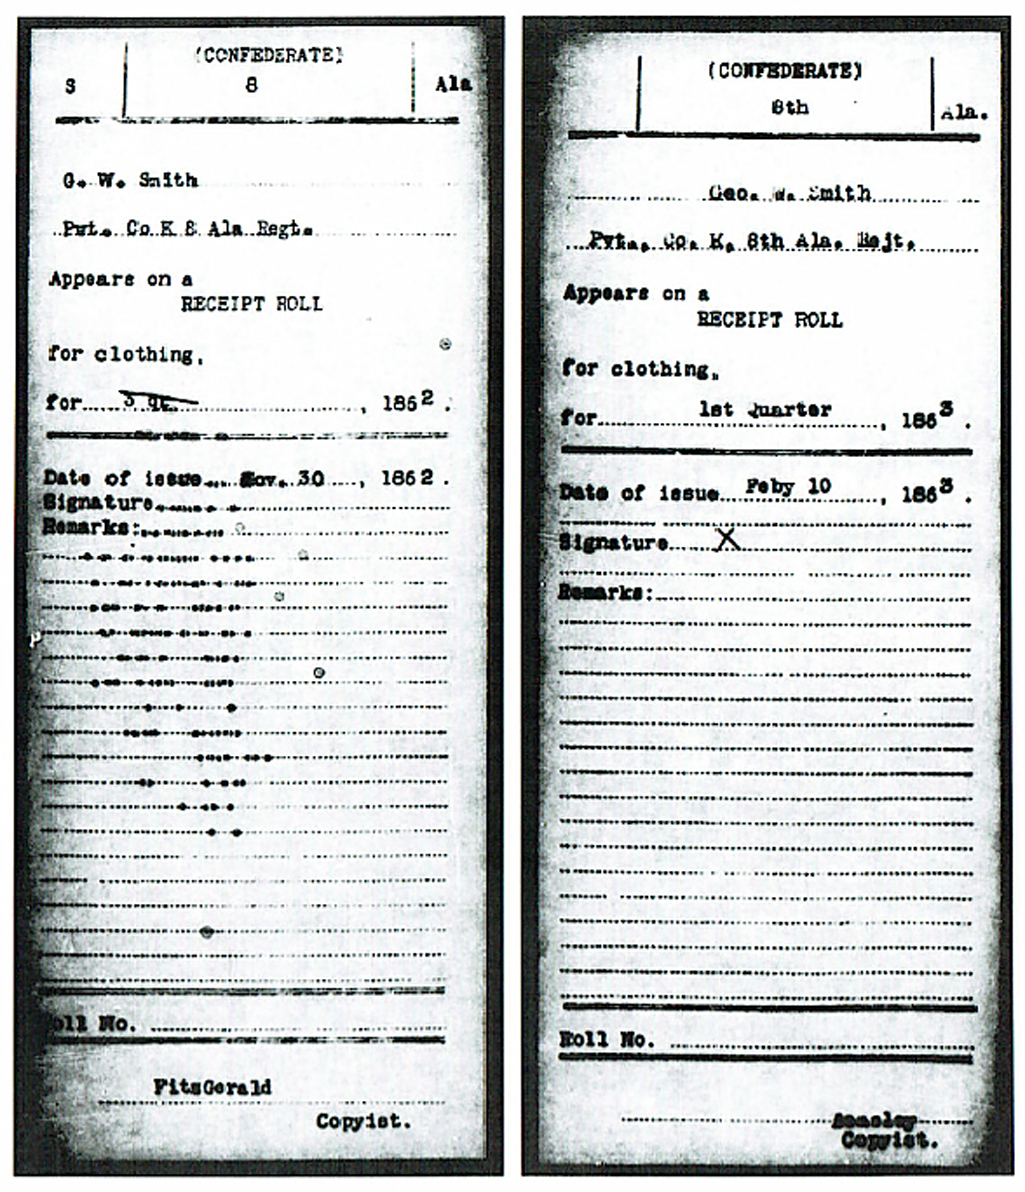 (CONFEDERATE)
S 8 Ala
G. W. Smith
Pvt. Co K 8 Ala Regt.
Appears on a
RECEIPT ROLL
for clothing,
for 3 qr. , 1862 .
Date of issue Nov. 30 , 1862 .
Signature
Remarks:
Roll No.
FitsGerald
Copyist.
(CONFEDERATE)
8th Ala.
Geo. W. Smith
Pvt., Co. K, 8th Ala. Rejt.
Appears on a
RECEIPT ROLL
for clothing,
for 1st Quarter , 1863 .
Date of issue Feby 10 , 1863 .
Signature X
Remarks:
Roll No.
Copyist.